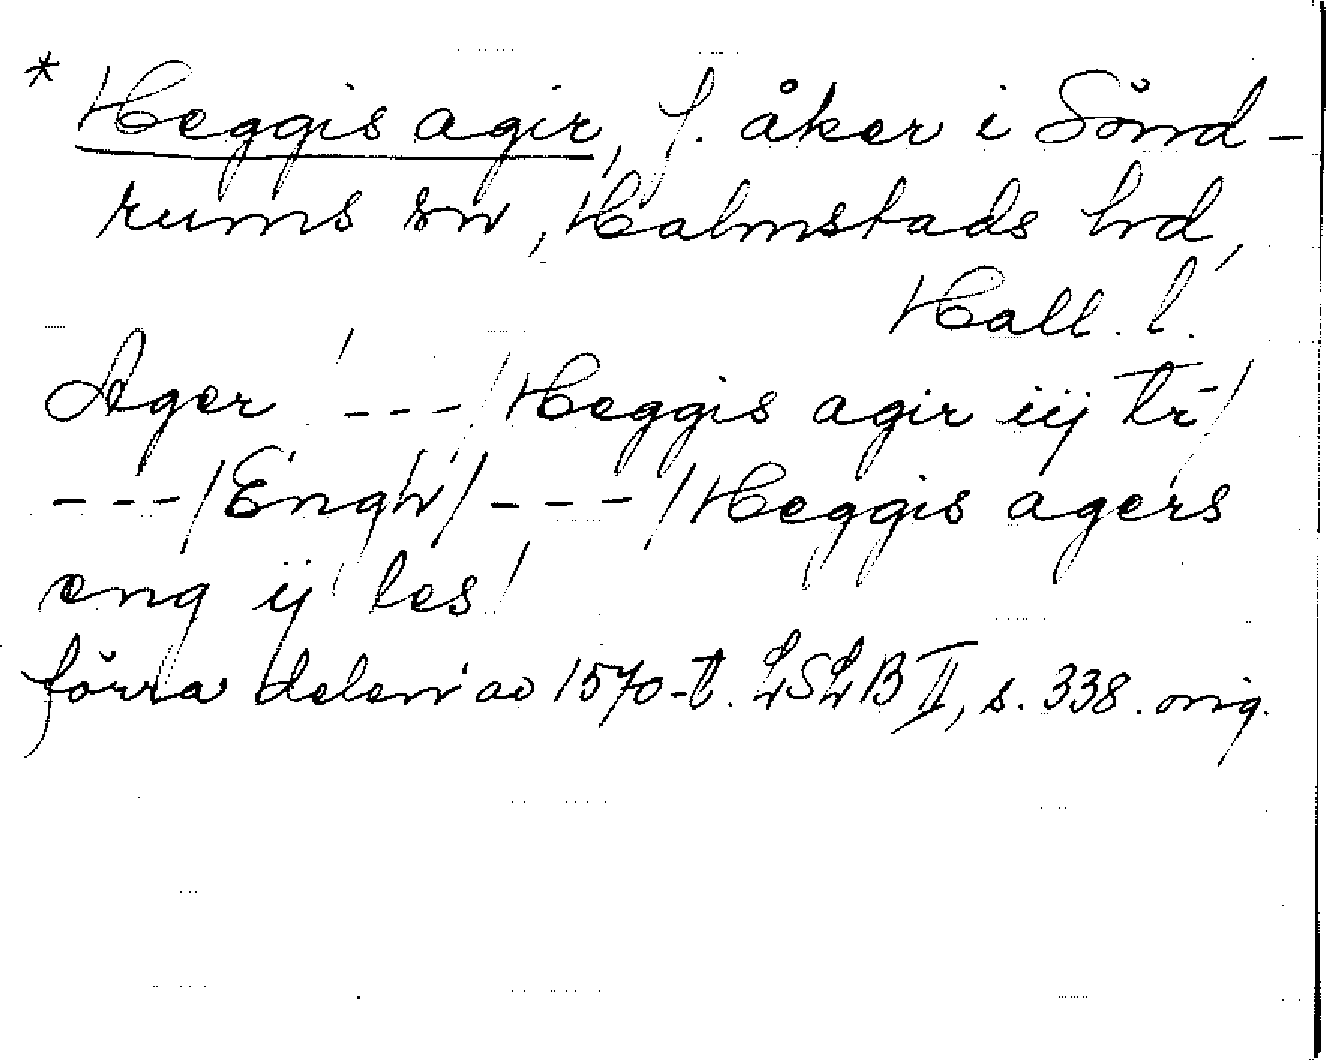 * Heggis agir, f. åker i Sönd-
rums sn, Halmstads hd,
Hall. l.
Ager / --- / Heggis agir iij tr-/
--- / Engh / --- / Heggis agers
eng ij les /
förra delen av 1570-t. LSLB II, s. 338. orig.